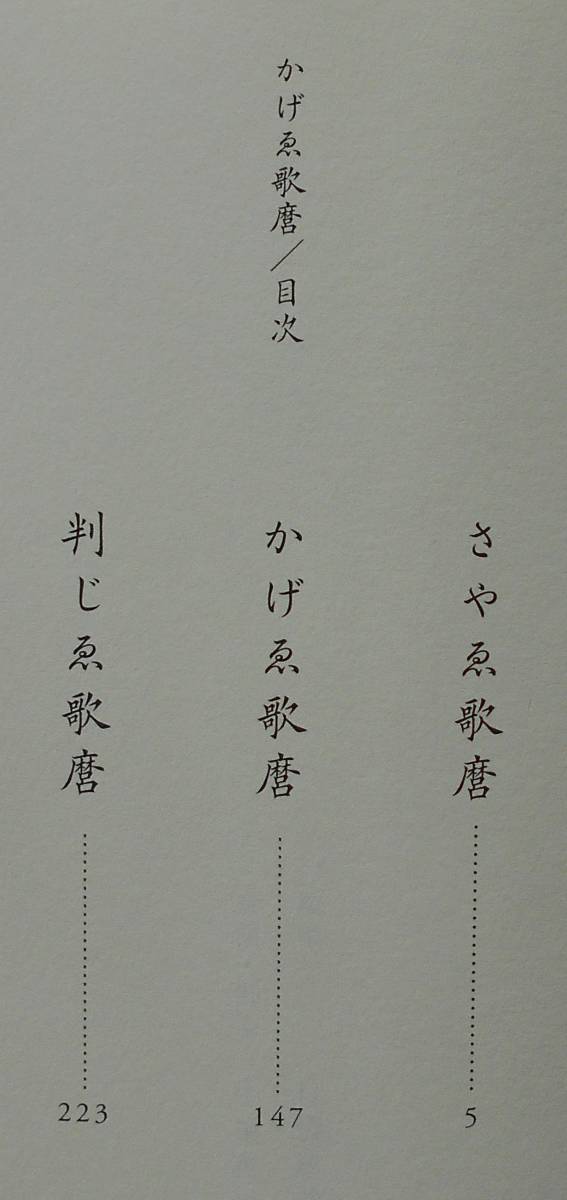 かげゑ歌麿／目次
さやゑ歌麿…………………………5
かげゑ歌麿…………………………147
判じゑ歌麿…………………………223